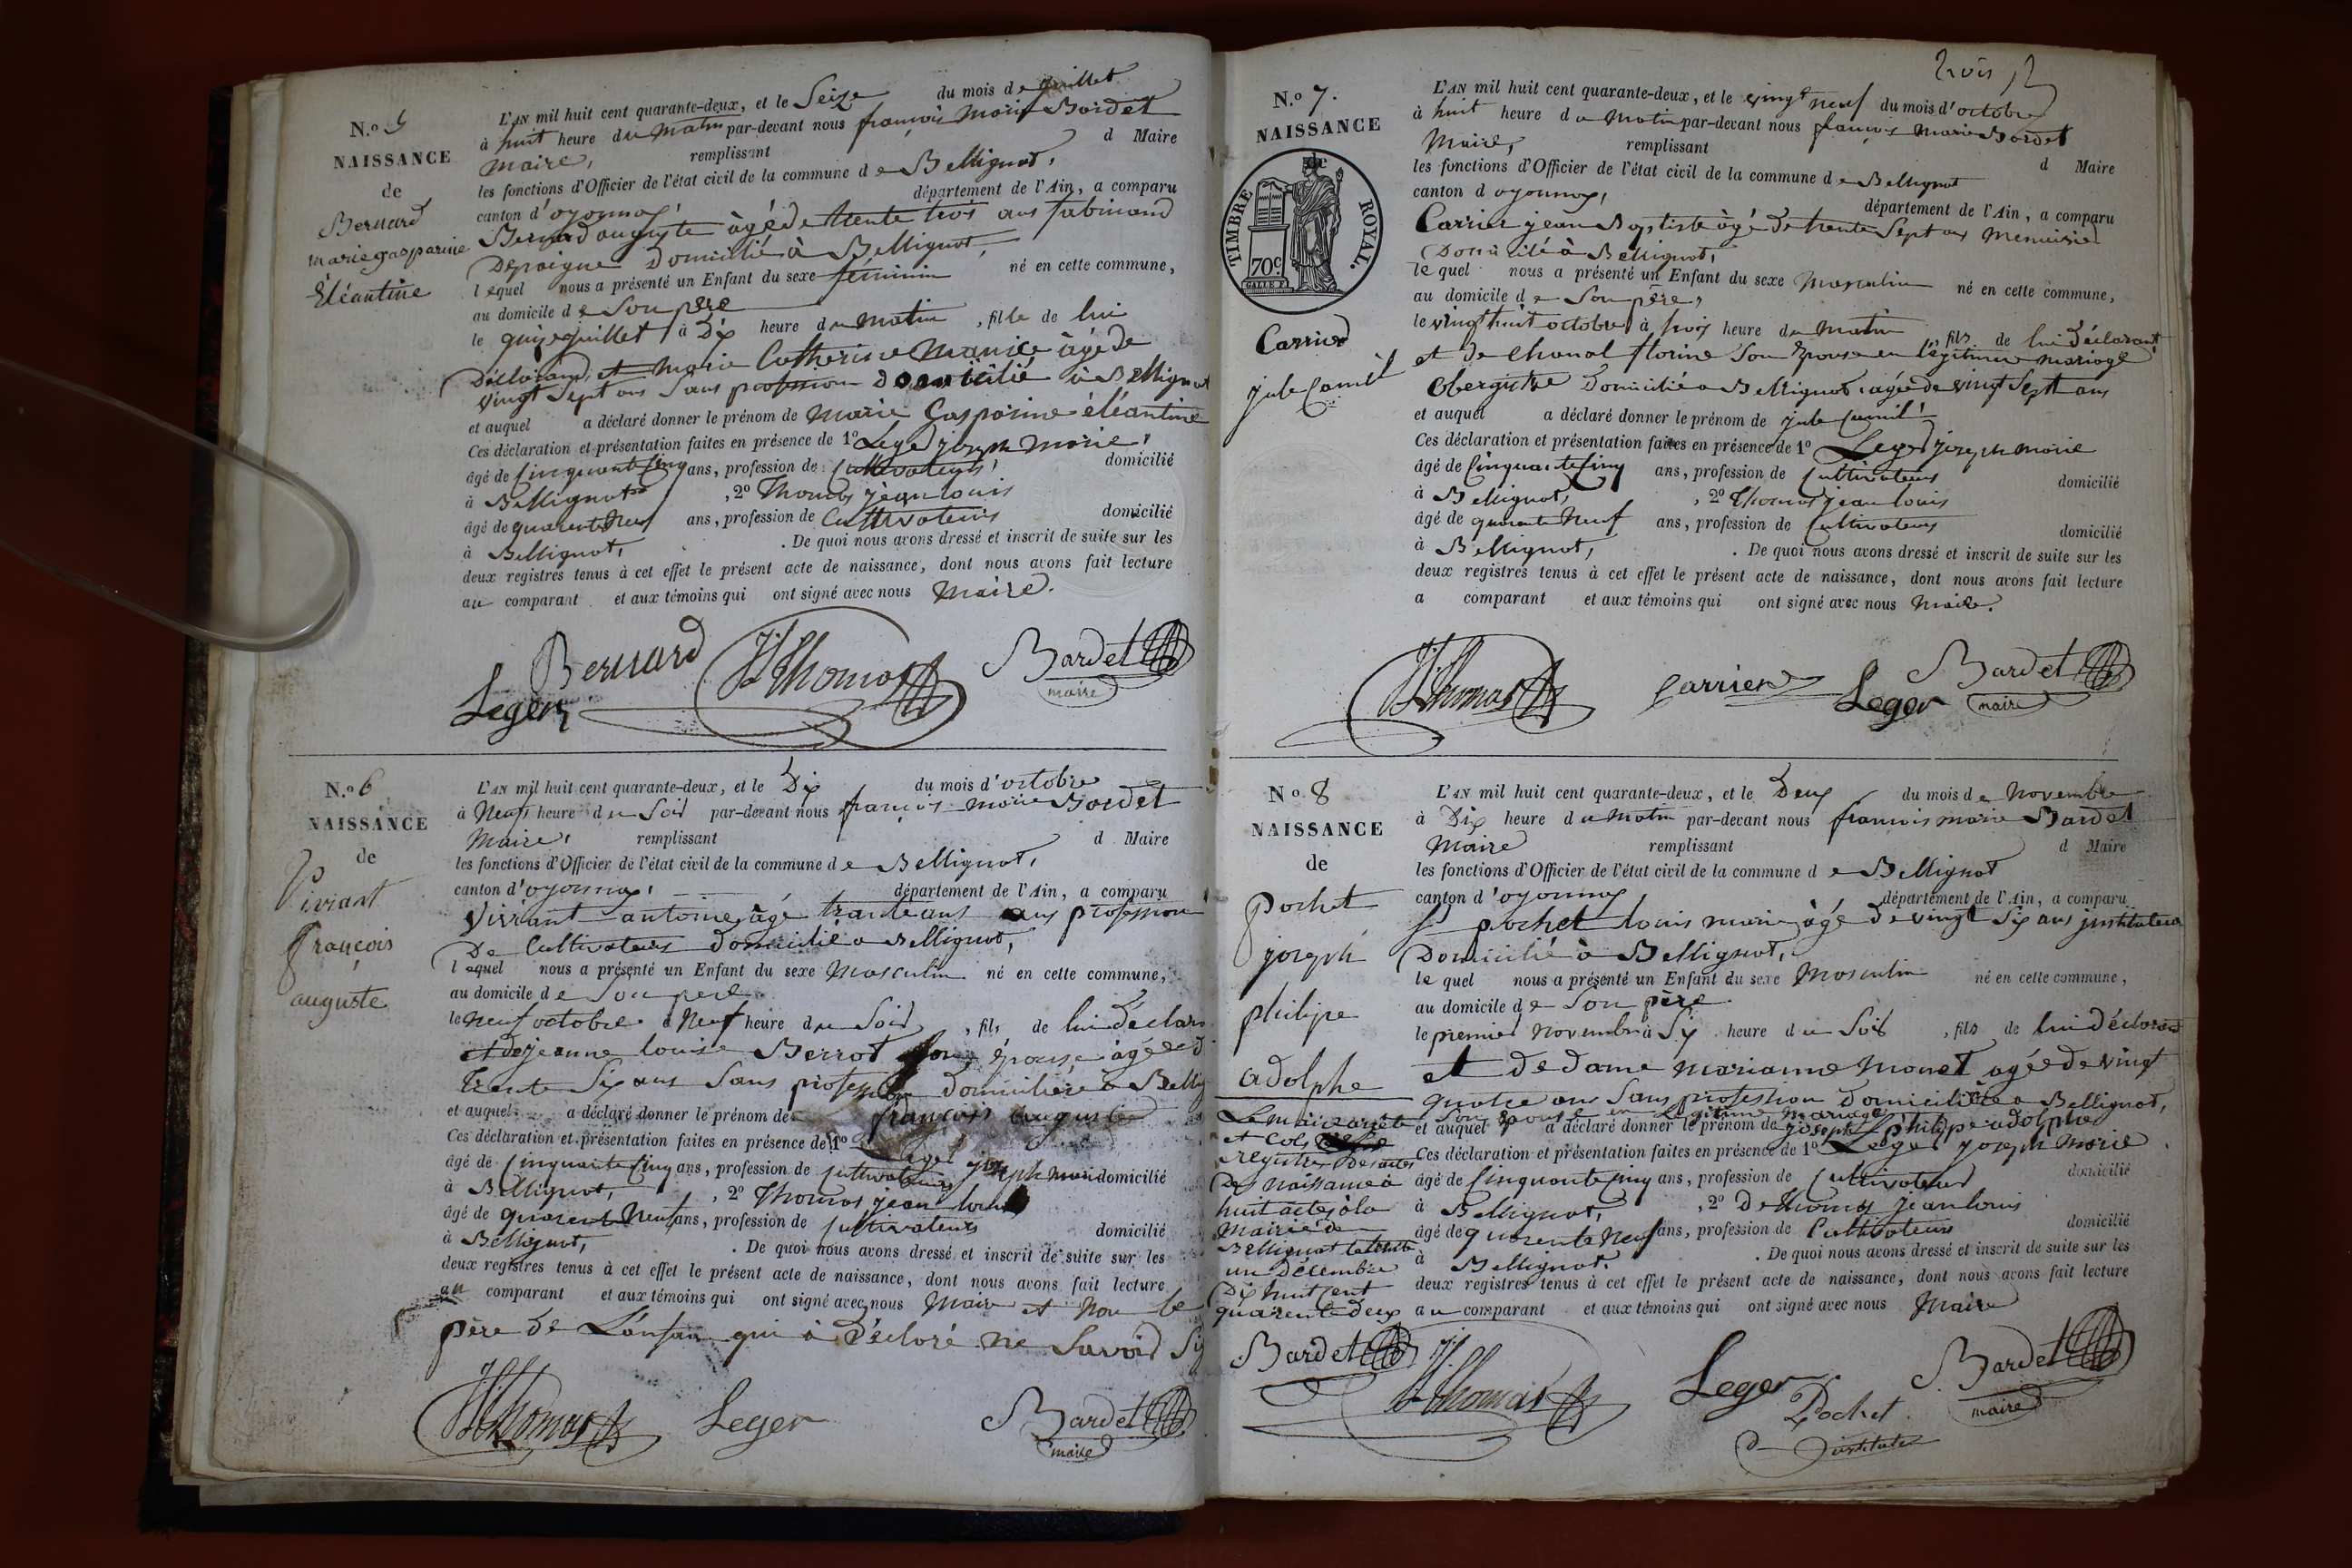 N.o 5
NAISSANCE
de
Bernard
marie gasparine
Éléantine
L'AN mil huit cent quarante-deux, et le Seize du mois de juillet
à huit heure du matin par-devant nous françois Marie Bardet
Maire, remplissant d Maire
les fonctions d'Officier de l'état civil de la commune de Bellignat,
canton d'oyonnax, département de l'Ain, a comparu
Bernard auguste âgé de trente trois ans fabricand
De peigne Domicilié à Bellignat,
lequel nous a présenté un Enfant du sexe féminin né en cette commune,
au domicile de Son père
le quinze juillet à Dix heure du matin, fille de lui
Déclarand, et Marie Catherine âgé de
vingt Sept ans Sans profession domicilié à Bellignat
et auquel a déclaré donner le prénom de Marie Gasparine éléantine
Ces déclaration et présentation faites en présence de 1o Leger joseph Marie,
âgé de Cinquante Cinq ans, profession de Cultivateurs, domicilié
à Bellignat, 2o Thomas jean louis
âgé de quarente Neuf ans, profession de Cultivateurs domicilié
à Bellignat, . De quoi nous avons dressé et inscrit de suite sur les
deux registres tenus à cet effet le présent acte de naissance, dont nous avons fait lecture
au comparant et aux témoins qui ont signé avec nous Maire.
Bernard Thomas Bardet
Leger maire
N.o 6
NAISSANCE
de
Viviant
françois
auguste
L'AN mil huit cent quarante-deux, et le Dix du mois d'octobre
à Neuf heure du Soir par-devant nous françois marie Bardet
Maire, remplissant d Maire
les fonctions d'Officier de l'état civil de la commune de Bellignat,
canton d'oyonnax, département de l'Ain, a comparu
Viviant antoine, âgé trante ans profession
De Cultivateurs domicilié a Bellignat,
lequel nous a présenté un Enfant du sexe Masculin né en cette commune,
au domicile de Son père
le Neuf octobre à Neuf heure du Soir, fils de lui déclara
et de jeanne louise Berrod Son épouse âgée d
trente Six ans Sans profession domiciliée à Bellig
et auquel a déclaré donner le prénom de françois auguste
Ces déclaration et présentation faites en présence de 1o Leger joseph Marie
âgé de Cinquante Cinq ans, profession de Cultivateurs domicilié
à Bellignat, 2o Thomas jean louis
âgé de quarent Neuf ans, profession de Cultivateurs domicilié
à Bellignat, . De quoi nous avons dressé et inscrit de suite sur les
deux registres tenus à cet effet le présent acte de naissance, dont nous avons fait lecture
au comparant et aux témoins qui ont signé avec nous Maire et Non le
père de L'enfan qui à Déclaré ne Savoir Sig
Thomas Leger Bardet
maire
trois
N.o 7.
NAISSANCE
de
TIMBRE ROYAL.
70c
Carrier
jule Camil
L'AN mil huit cent quarante-deux, et le vingt neuf du mois d'octobre
à huit heure du Matin par-devant nous françois Marie Bardet
Maire, remplissant d Maire
les fonctions d'Officier de l'état civil de la commune de Bellignat
canton d oyonnax, département de l'Ain, a comparu
Carrier jean Baptiste âgé de trente Sept ans Menuisier
Domicilié à Bellignat,
le quel nous a présenté un Enfant du sexe Masculin né en cette commune,
au domicile de Son père,
le vingt huit octobre, à trois heure du Matin fils de lui Déclarant
et de Chanal florine Son Epouse en légitimes mariage
Domicilié a Bellignat, agée de vingt Sept ans
et auquel a déclaré donner le prénom de jule Camil
Ces déclaration et présentation faites en présence de 1o Leger joseph Marie
âgé de Cinquante Cinq ans, profession de Cultivateurs domicilié
à Bellignat, 2o Thomas jean louis
âgé de quarante Neuf ans, profession de Cultivateurs domicilié
à Bellignat, . De quoi nous avons dressé et inscrit de suite sur les
deux registres tenus à cet effet le présent acte de naissance, dont nous avons fait lecture
a comparant et aux témoins qui ont signé avec nous Maire.
Thomas Carrier Leger Bardet
maire
No 8
NAISSANCE
de
Pochet
joseph
philipe
adolphe
Le maire arrête
et Clos
registres Des actes
De Naissance à
huit actes à la
Mairie de
Bellignat le trente
un Décembre
Dix huit Cent
quarente deux
Bardet
L'AN mil huit cent quarante-deux, et le Deux du mois de Novembre
à Dix heure du Matin par-devant nous françois marie Bardet
Maire remplissant d Maire
les fonctions d'Officier de l'état civil de la commune de Bellignat
canton d'oyonnax département de l'Ain, a comparu
pochet louis marie, âgé de vingt Six ans instituteur
Domicilié à Bellignat,
le quel nous a présenté un Enfant du sexe Masculin né en cette commune,
au domicile de Son père
le premier Novembre à Six heure du Soir, fils de lui Déclarant
et De dame Marianne Monet agée de vingt
quatre ans Sans profession Domiciliée a Bellignat,
Son Epouse en Légitime Mariage
et auquel a déclaré donner le prénom de joseph philippe adolphe
Ces déclaration et présentation faites en présence de 1o Leger joseph Marie
âgé de Cinquante Cinq ans, profession de Cultivateur domicilié
à Bellignat, 2o De thomas jean louis
âgé de quarente Neuf ans, profession de Cultivateurs domicilié
à Bellignat. . De quoi nous avons dressé et inscrit de suite sur les
deux registres tenus à cet effet le présent acte de naissance, dont nous avons fait lecture
au comparant et aux témoins qui ont signé avec nous Maire
Thomas Leger Bardet
Pochet maire